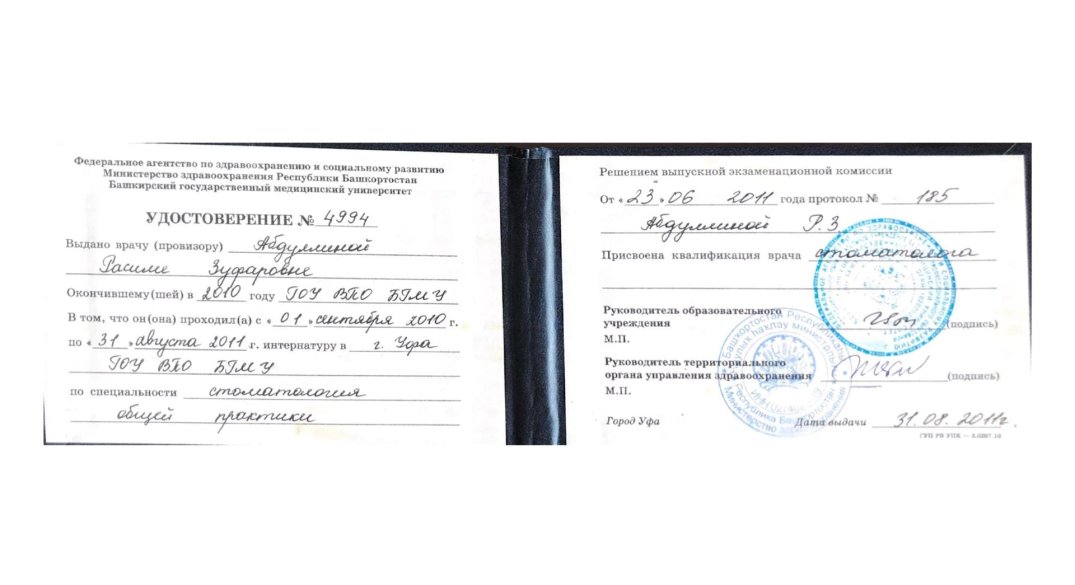 Федеральное агентство по здравоохранению и социальному развитию
Министерство здравоохранения Республики Башкортостан
Башкирский государственный медицинский университет
УДОСТОВЕРЕНИЕ № 4994
Выдано врачу (провизору) Абдуллиной
Расиме Зуфаровне
Окончившему(шей) в 2010 году ГОУ ВПО БГМУ
В том, что он(она) проходил(а) с «01» сентября 2010 г.
по «31» августа 2011 г. интернатуру в г. Уфа
ГОУ ВПО БГМУ
по специальности стоматология
общей практики
Решением выпускной экзаменационной комиссии
От «23» 06 2011 года протокол № 185
Абдуллиной Р.З.
Присвоена квалификация врача стоматолога
Руководитель образовательного
учреждения (подпись)
М.П.
Руководитель территориального
органа управления здравоохранения (подпись)
М.П.
Город Уфа Дата выдачи 31.08.2011г.